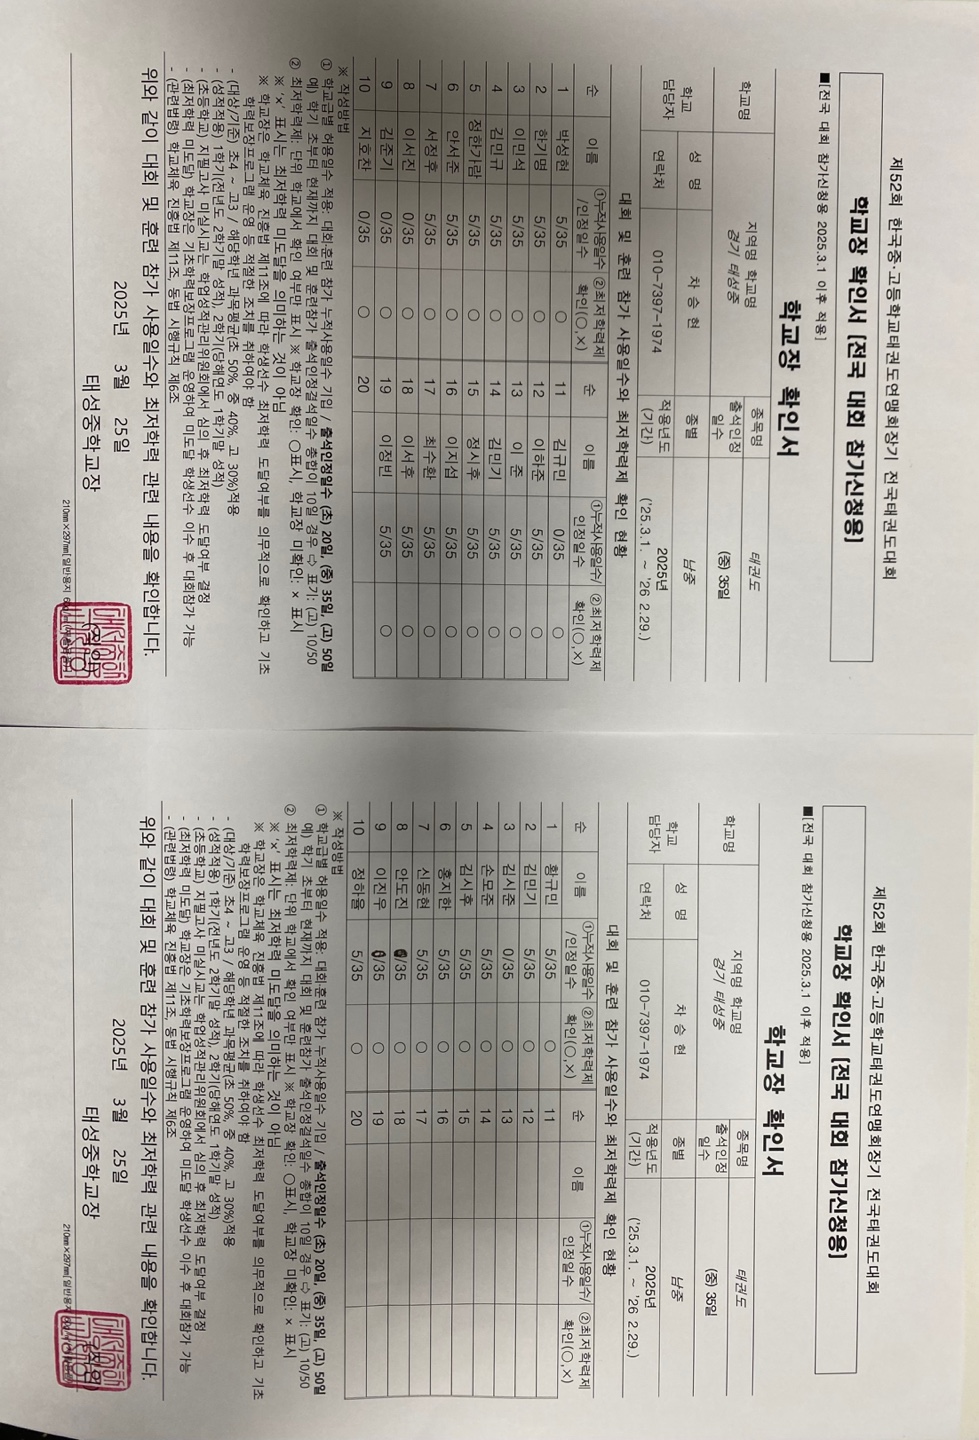 제52회 한국중·고등학교태권도연맹회장기 전국태권도대회
학교장 확인서 [전국 대회 참가신청용]
■[전국 대회 참가신청용 2025.3.1 이후 적용]
학교장 확인서
학교명 지역명 학교명 경기 태성중 종목명 태권도
출석인정일수 (중) 35일
학교 담당자 성 명 차 승 현 종별 남중
연락처 010-7397-1974 적용년도 (기간) 2025년 ('25.3.1. ~ '26 2.29.)
대회 및 훈련 참가 사용일수와 최저학력제 확인 현황
순 이름 ①누적사용일수/인정일수 ②최저학력제 확인(○,×) 순 이름 ①누적사용일수/인정일수 ②최저학력제 확인(○,×)
1 박성현 5/35 ○ 11 김규민 0/35 ○
2 한기명 5/35 ○ 12 이하준 5/35 ○
3 이민석 5/35 ○ 13 이 준 5/35 ○
4 김민규 5/35 ○ 14 김민기 5/35 ○
5 정한가람 5/35 ○ 15 정시후 5/35 ○
6 안서준 5/35 ○ 16 이지섭 5/35 ○
7 서정후 5/35 ○ 17 최수환 5/35 ○
8 이서진 0/35 ○ 18 이서후 5/35 ○
9 김준기 0/35 ○ 19 이정빈 5/35 ○
10 지호찬 0/35 ○ 20
※ 작성방법
① 학교급별 허용일수 적용: 대회·훈련 참가 누적사용일수 기입 / 출석인정일수 (초) 20일, (중) 35일, (고) 50일
예) 학기 초부터 현재까지 대회 및 훈련참가 출석인정결석일수 총합이 10일 경우 ⇨ 표기: (고) 10/50
② 최저학력제: 단위 학교에서 확인 여부만 표시 ※ 학교장 확인: ○표시, 학교장 미확인: × 표시
※ '×' 표시는 최저학력 미도달을 의미하는 것이 아님
※ 학교장은 학교체육 진흥법 제11조에 따라 학생선수 최저학력 도달여부를 의무적으로 확인하고 기초
학력보장프로그램 운영 등 적절한 조치를 취하여야 함
- (대상/기준) 초4 ~ 고3 / 해당학년 과목평균(초 50%, 중 40%, 고 30%)적용
- (성적적용) 1학기(전년도 2학기말 성적), 2학기(당해연도 1학기말 성적)
- (초등학교) 지필고사 미실시교는 학업성적관리위원회에서 심의 후 최저학력 도달여부 결정
- (최저학력 미도달) 학교장은 기초학력보장프로그램 운영하여 미도달 학생선수 이수 후 대회참가 가능
- (관련법령) 학교체육 진흥법 제11조, 동법 시행규칙 제6조
위와 같이 대회 및 훈련 참가 사용일수와 최저학력 관련 내용을 확인합니다.
2025년 3월 25일
태성중학교장
210㎜×297㎜[일반용지
제52회 한국중·고등학교태권도연맹회장기 전국태권도대회
학교장 확인서 [전국 대회 참가신청용]
■[전국 대회 참가신청용 2025.3.1 이후 적용]
학교장 확인서
학교명 지역명 학교명 경기 태성중 종목명 태권도
출석인정일수 (중) 35일
학교 담당자 성 명 차 승 현 종별 남중
연락처 010-7397-1974 적용년도 (기간) 2025년 ('25.3.1. ~ '26 2.29.)
대회 및 훈련 참가 사용일수와 최저학력제 확인 현황
순 이름 ①누적사용일수/인정일수 ②최저학력제 확인(○,×) 순 이름 ①누적사용일수/인정일수 ②최저학력제 확인(○,×)
1 황규민 5/35 ○ 11
2 김민기 5/35 ○ 12
3 김시준 0/35 ○ 13
4 손모준 5/35 ○ 14
5 김시후 5/35 ○ 15
6 홍지한 5/35 ○ 16
7 신동현 5/35 ○ 17
8 안도진 /35 ○ 18
9 이진우 0/35 ○ 19
10 정하율 5/35 ○ 20
※ 작성방법
① 학교급별 허용일수 적용: 대회·훈련 참가 누적사용일수 기입 / 출석인정일수 (초) 20일, (중) 35일, (고) 50일
예) 학기 초부터 현재까지 대회 및 훈련참가 출석인정결석일수 총합이 10일 경우 ⇨ 표기: (고) 10/50
② 최저학력제: 단위 학교에서 확인 여부만 표시 ※ 학교장 확인: ○표시, 학교장 미확인: × 표시
※ '×' 표시는 최저학력 미도달을 의미하는 것이 아님
※ 학교장은 학교체육 진흥법 제11조에 따라 학생선수 최저학력 도달여부를 의무적으로 확인하고 기초
학력보장프로그램 운영 등 적절한 조치를 취하여야 함
- (대상/기준) 초4 ~ 고3 / 해당학년 과목평균(초 50%, 중 40%, 고 30%)적용
- (성적적용) 1학기(전년도 2학기말 성적), 2학기(당해연도 1학기말 성적)
- (초등학교) 지필고사 미실시교는 학업성적관리위원회에서 심의 후 최저학력 도달여부 결정
- (최저학력 미도달) 학교장은 기초학력보장프로그램 운영하여 미도달 학생선수 이수 후 대회참가 가능
- (관련법령) 학교체육 진흥법 제11조, 동법 시행규칙 제6조
위와 같이 대회 및 훈련 참가 사용일수와 최저학력 관련 내용을 확인합니다.
2025년 3월 25일
태성중학교장
210㎜×297㎜[일반용지